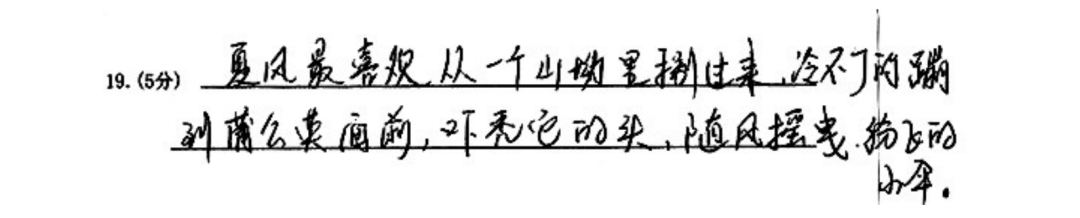 19. (5分) 夏风最喜欢从一个山坳里捌过来,冷不丁的蹦
到蒲公英面前,吓秃它的头,随风摇曳.纷飞的
小伞.